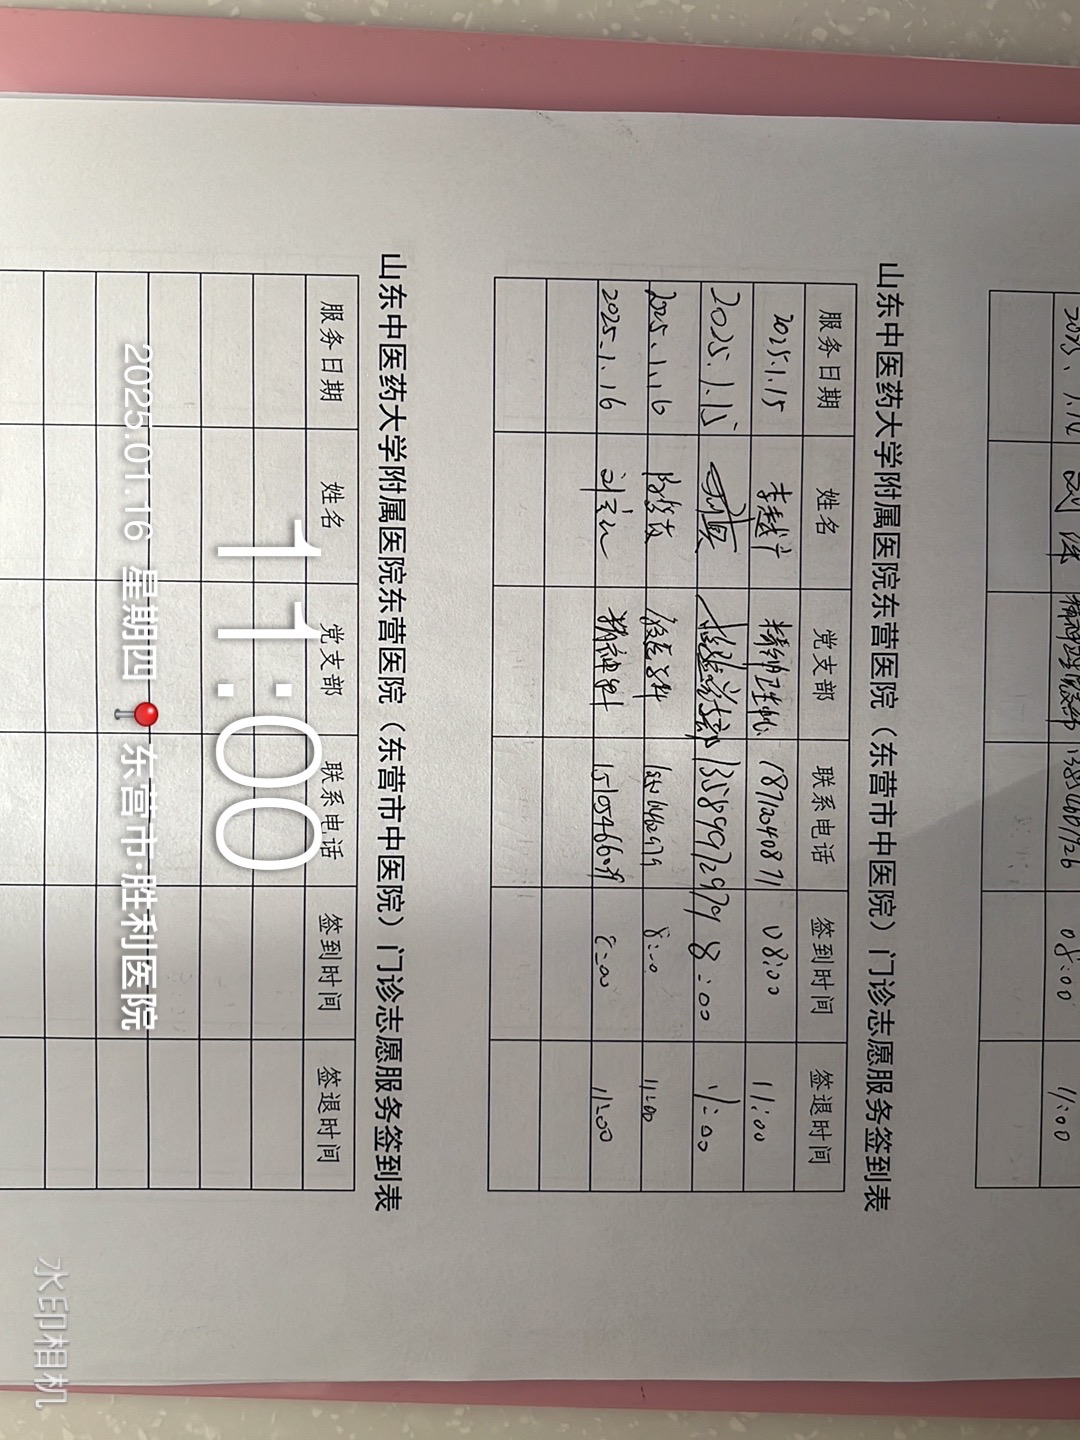 2025.1.12 刘 08:00 11:00
山东中医药大学附属医院东营医院（东营市中医院）门诊志愿服务签到表
服务日期 姓名 党支部 联系电话 签到时间 签退时间
2025.1.15 李 18712040871 08:00 11:00
2025.1.15 13589972979 8:00 11:00
2025.1.16 8:00 11:00
2025.1.16 刘 精神科 8:00 11:00
山东中医药大学附属医院东营医院（东营市中医院）门诊志愿服务签到表
服务日期 姓名 党支部 联系电话 签到时间 签退时间
11:00
2025.01.16 星期四 东营市·胜利医院
水印相机